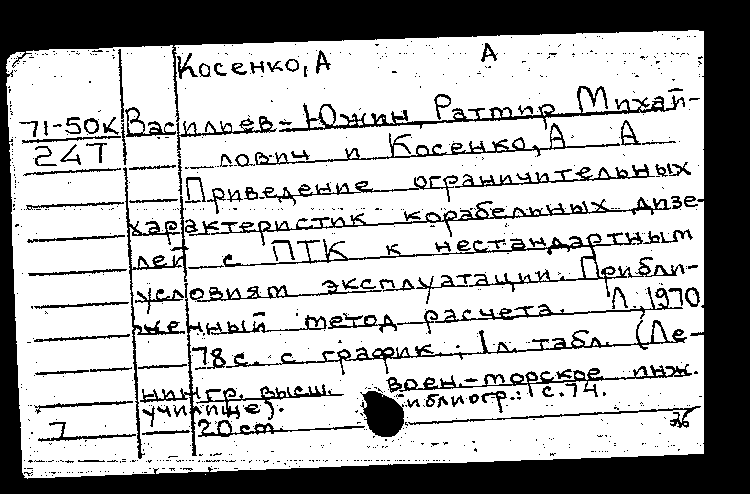 Косенко, А А
71-50к Васильев-Южин, Ратмир Михай-
24т лович и Косенко, А А
Приведение ограничительных
характеристик корабельных дизе-
лей с ПТК к нестандартным
условиям эксплуатации. Прибли-
женный метод расчета. Л., 1970.
78 с. с график.; 1 л. табл. (Ле-
нингр. высш. воен.-морское инж.
училище). иблиогр.: с. 74.
7 20 см.